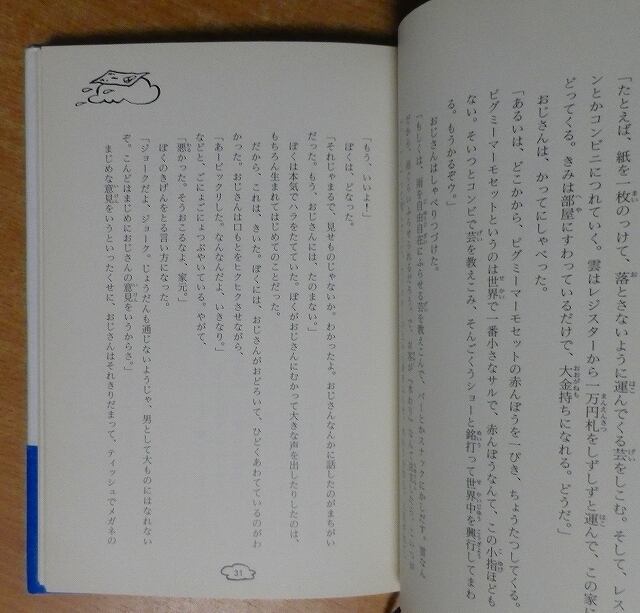 「たとえば、紙を一枚のっけて、落とさないように運んでくる芸をしこむ。そして、レス
ンとかコンビニにつれていく。雲はレジスターから一万円札をしずしずと運んで、この家に
どってくる。きみは部屋にすわっているだけで、大金持ちになれる。どうだ。」
おじさんは、かってにしゃべった。
「あるいは、どこかから、ピグミーマーモセットの赤んぼうを一ぴき、ちょうたつしてくる。
ピグミーマーモセットというのは世界で一番小さなサルで、赤んぼうなんて、この小指ほども
ない。そいつとコンビで芸を教えこみ、そんごくうショーと銘打って世界中を興行してまわ
る。もうかるぞウ。」
おじさんはしゃべりつづけた。
「もしくは、雨を自由自在にふらせる芸を教えこんで、バーとかスナックにかしだす。
「もう、いいよ!」
ぼくは、どなった。
「それじゃまるで、見せものじゃないか。わかったよ。おじさんなんかに話したのがまちがい
だった。もう、おじさんには、たのまない。」
ぼくは本気でハラをたてていた。ぼくがおじさんにむかって大きな声を出したりしたのは、
もちろん生まれてはじめてのことだった。
だから、これは、きいた。ぼくには、おじさんがおどろいて、ひどくあわてているのがわ
かった。おじさんは口もとをヒクヒクさせながら、
「あービックリした。なんなんだよ、いきなり。」
などと、ごにょごにょつぶやいている。やがて、
「悪かった。そうおこるなよ、家元。」
ぼくのきげんをとる言い方になった。
「ジョークだよ、ジョーク。じょうだんも通じないようじゃ、男として大ものにはなれない
ぞ。こんどはまじめにおじさんの意見をいうからさ。」
まじめな意見をいうといったくせに、おじさんはそれきりだまって、ティッシュでメガネの
31